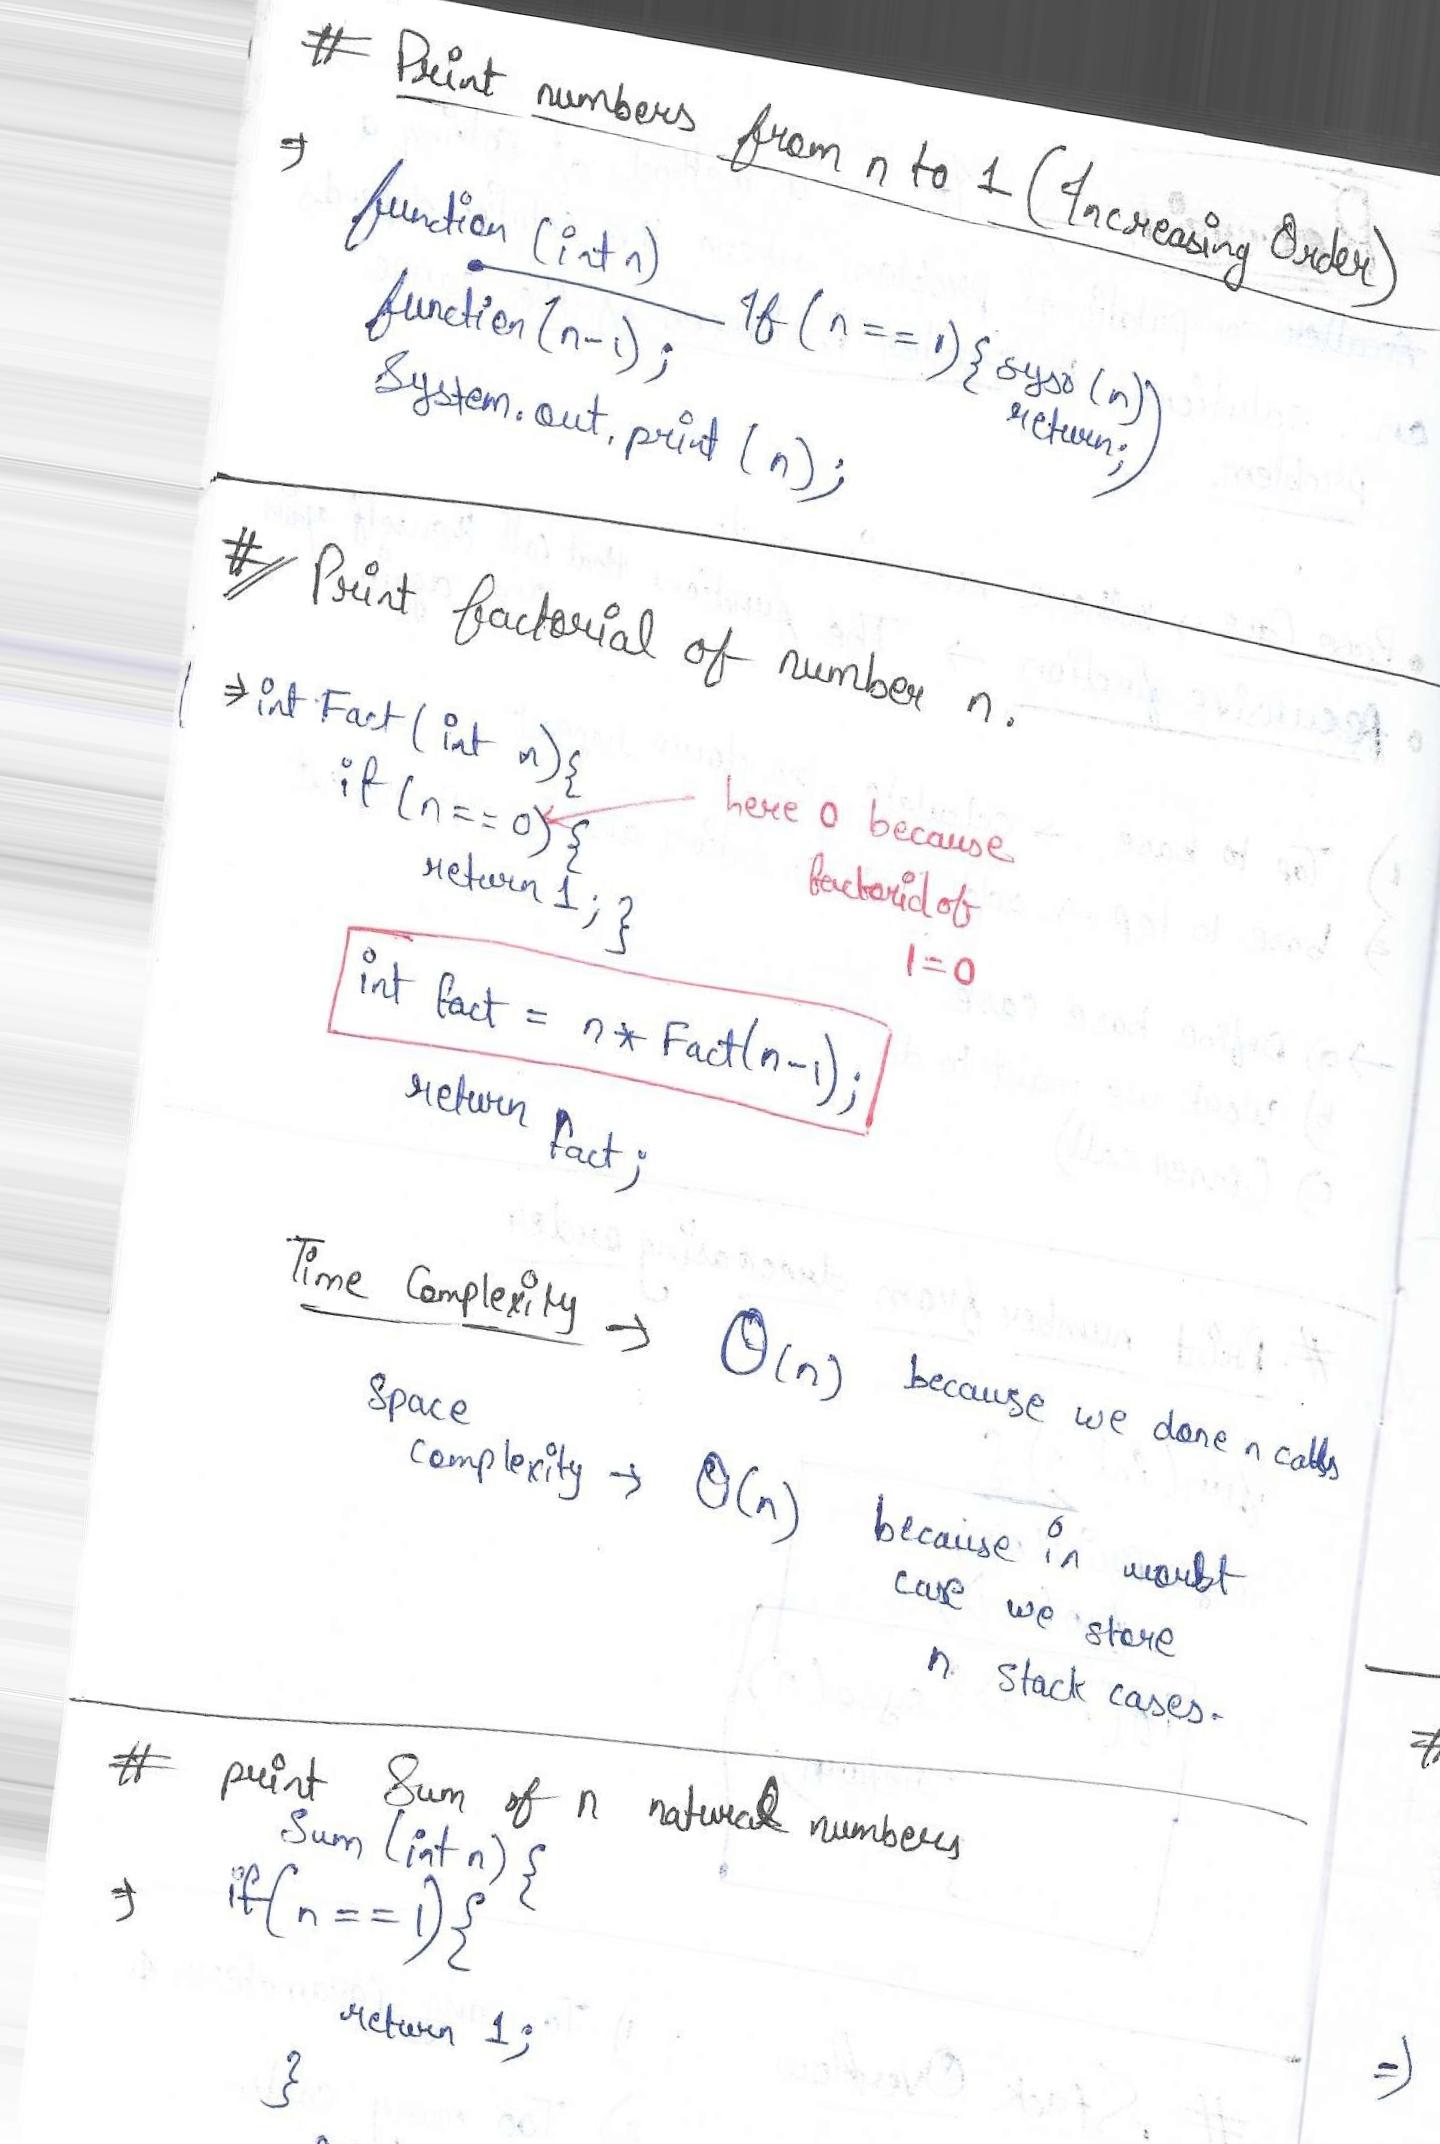 # Print numbers from n to 1 (Increasing Order)
⇒
function (int n)
If (n == 1) { syso (n)
return; )
function (n-1);
System.out.print (n);
# Print factorial of number n.
⇒ int Fact (int n) {
if (n == 0) {
here 0 because
factorid of
1=0
return 1; }
int fact = n * Fact(n-1);
return fact;
Time Complexity → O(n) because we done n calls
Space
complexity → O(n) because in
case we store
n stack cases.
# print Sum of n natural numbers
Sum (int n) {
⇒ if (n == 1) {
return 1;
}
#
⇒)